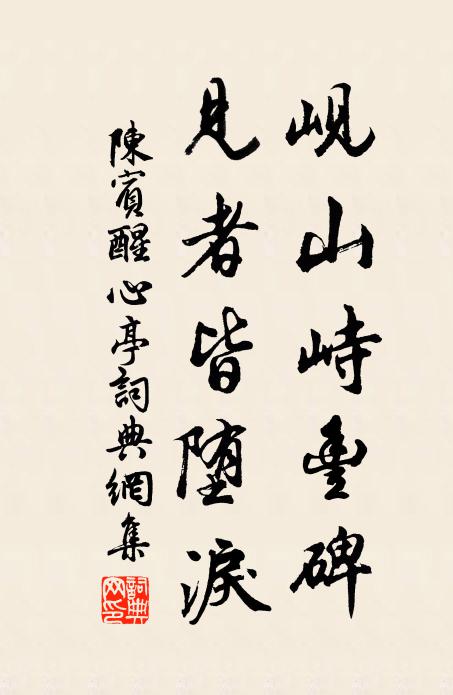 峴山峙豐碑
見者皆堕淚
陳賓醒心亭詞典網集
詞典網印